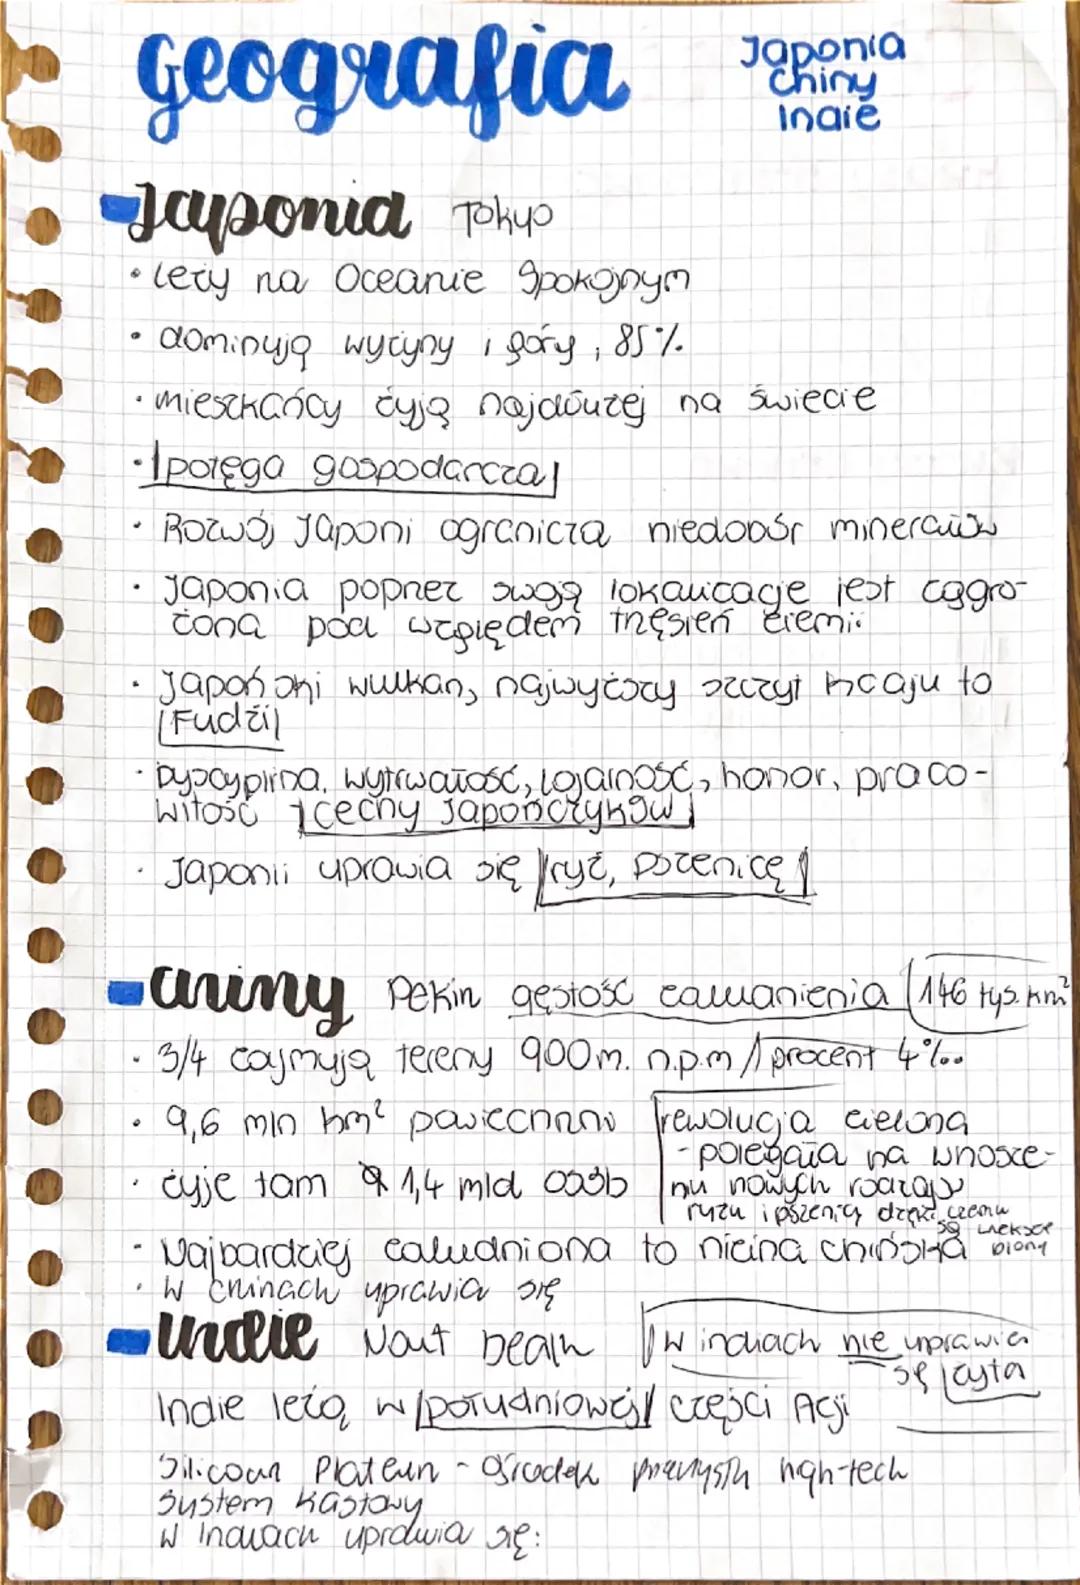 Geografia
Japonia
Chiny
Indie
Japonia Tokyo
• leży na Oceanie Spokojnym
• dominują wyżyny i góry, 85%
• mieszkańcy żyją najdłużej na świecie
• potęga gospodarcza
• Rozwój Japoni ogranicza niedobór minerałów
• Japonia poprzez swoją lokalizacje jest zagro-
żona pod względem trzęsień ziemi
• Japoński wulkan, najwyższy szczyt kraju to
Fudżi
• Dyscyplina, wytrwałość, lojalność, honor, praco-
witość cechy Japończyków
• Japonii uprawia się ryż, pszenicę
Chiny Pekin gęstość zaludnienia 146 tys. km²
• 3/4 zajmują tereny 900m. n.p.m / procent 4%
• 9,6 mln km² powierzchni
• żyje tam 1,4 mld osób
rewolucja zielona
- polegała na wnosze-
niu nowych rodzaju
ryżu i pszenicy dzięki czemu
są większe
plony
• Najbardziej zaludniona to nizina chińska
• W chinach uprawia się
Indie
W indiach nie uprawia
się żyta
Indie leżą w południowej części Azji
ośrodek przemysłu high-tech
System kastowy
W Indiach uprawia się: